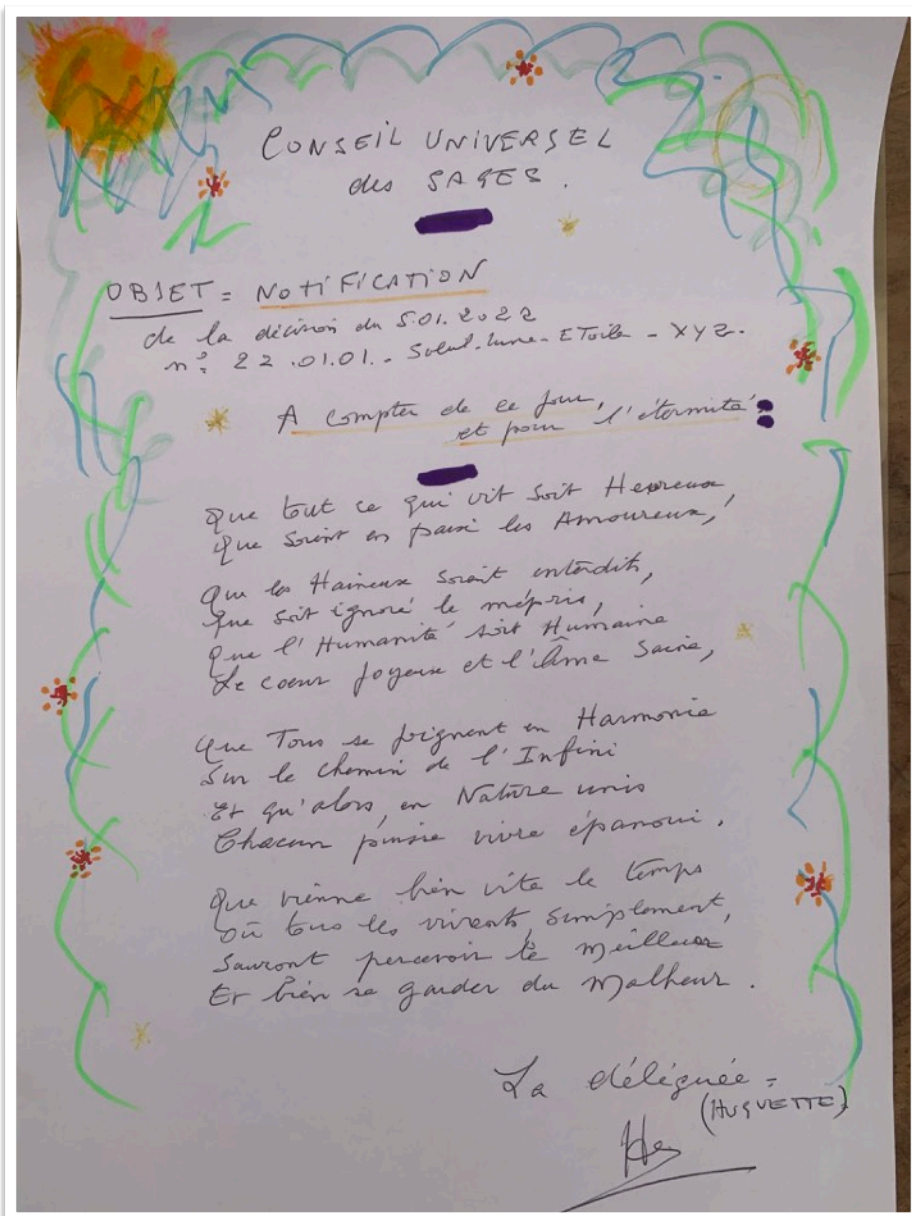 CONSEIL UNIVERSEL
des SAGES.
OBJET = NOTIFICATION
de la décision du 5.01.2022
n°: 22.01.01. - Soleil-lune-EToile - XYZ.
A compter de ce jour,
et pour l'éternité :
Que tout ce qui vit soit Heureux,
Que soient en paix les Amoureux,
Que les Haineux soient interdits,
Que soit ignoré le mépris,
Que l'Humanité soit Humaine
Le coeur joyeux et l'Âme Saine,
Que Tous se joignent en Harmonie
Sur le chemin de l'Infini
Et qu'alors, en Nature unis
Chacun puisse vivre épanoui.
Que vienne bien vite le temps
Où tous les vivants, simplement,
Sauront percevoir le Meilleur
Et bien se garder du Malheur.
La déléguée =
(HUGUETTE)